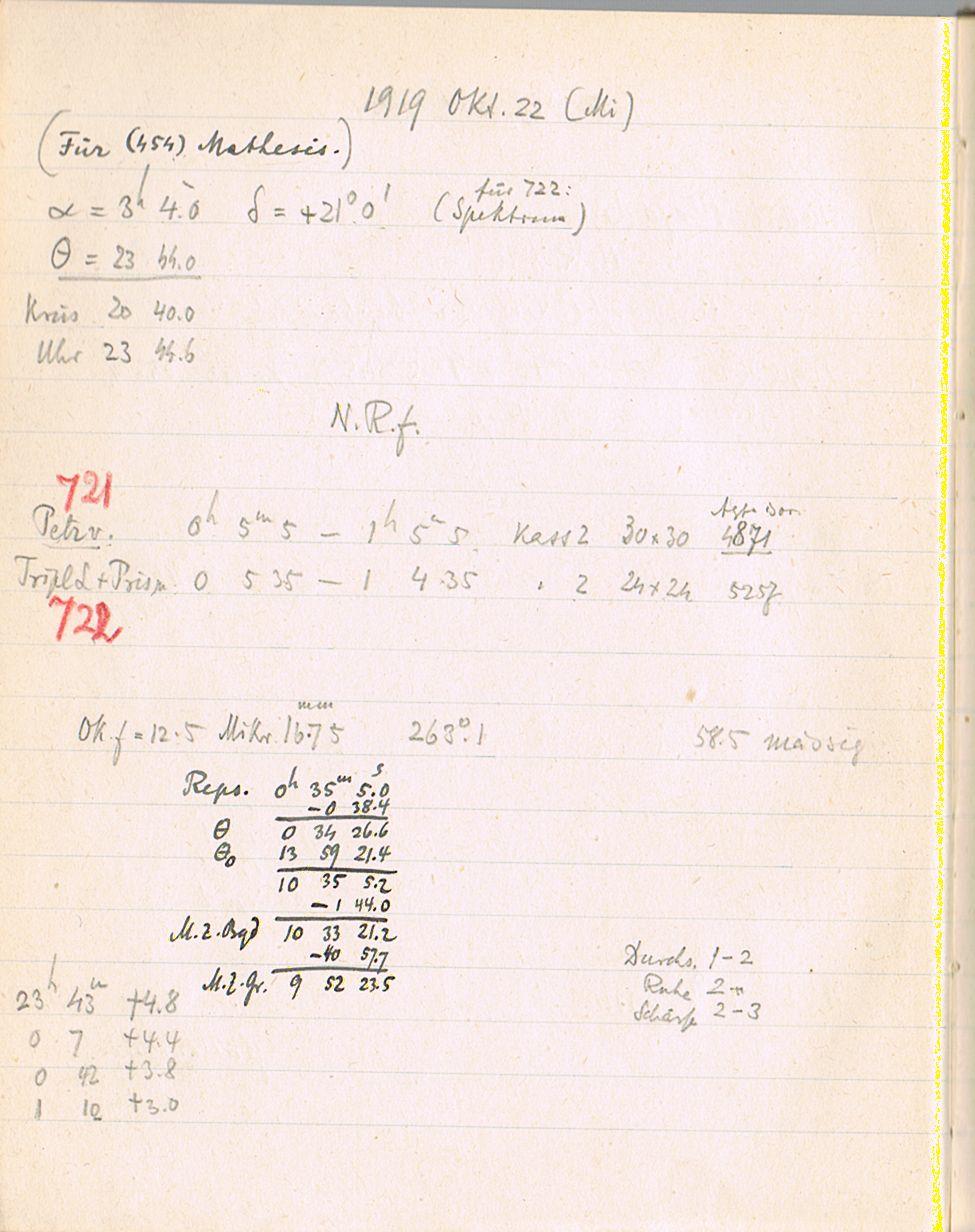 1919 Okt. 22 (Mi)
(Für (454) Mathesis.)
für 722:
α = 3h 4.0 δ = +21° 0' (Spektrum)
θ = 23 44.0
Kreis 20 40.0
Uhr 23 44.6
N.R.f.
721
Petzv. 0h 5m 5 – 1h 5m 5 Kass 2 30×30 4871
Tripl + Prism 0 5 35 – 1 4.35 " 2 24×24
722
Ok. f = 12.5 Mikr. 16.75 mm 263°.1 58.5 mässig
Reps. 0h 35m 5.0s
-0 38.4
θ 0 34 26.6
θ0 13 59 21.4
10 35 5.2
-1 44.0
M.Z.Bgd 10 33 21.2
-40 57.7
M.Z.Gr. 9 52 23.5
Durchs. 1-2
Ruhe 2
Schärfe 2-3
23h 43m +4.8
0 7 +4.4
0 42 +3.8
1 10 +3.0